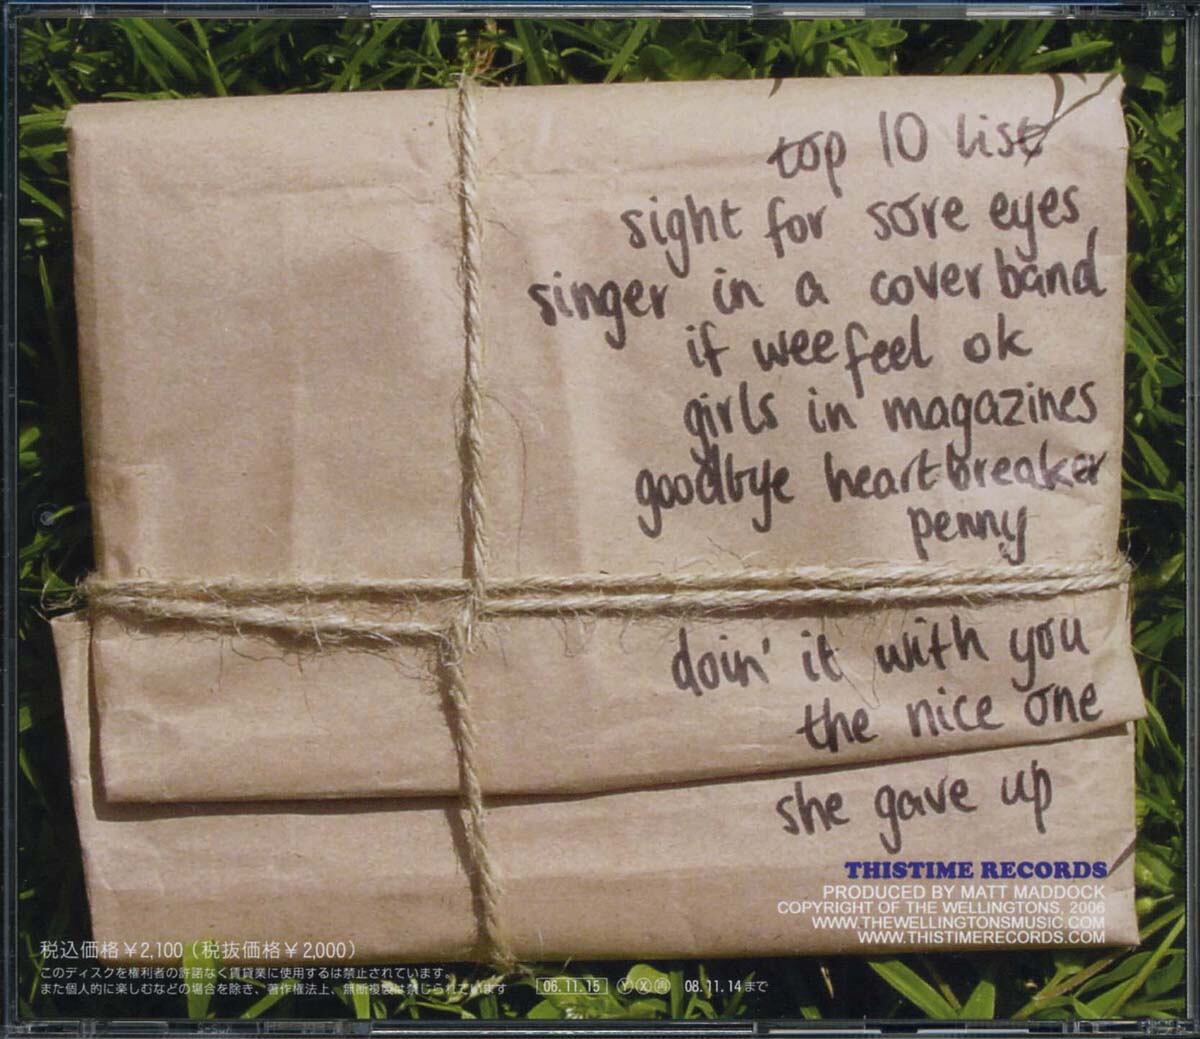 top 10 list
sight for sore eyes
singer in a cover band
if wee feel ok
girls in magazines
goodbye heartbreaker
penny
doin' it with you
the nice one
she gave up
THISTIME RECORDS
PRODUCED BY MATT MADDOCK
COPYRIGHT OF THE WELLINGTONS, 2006
WWW.THEWELLINGTONSMUSIC.COM
WWW.THISTIMERECORDS.COM
税込価格￥2,100（税抜価格￥2,000）
このディスクを権利者の許諾なく賃貸業に使用するは禁止されています。
また個人的に楽しむなどの場合を除き、著作権法上、無断複製は禁じられています
06.11.15 Ⓨ Ⓧ 再 08.11.14まで